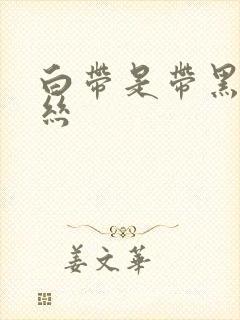 白带是带黑
丝
姜文华